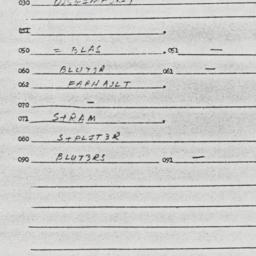 030
051
050 = BLAS . 051 —
060 BLUT3R 061 —
062 FARHAULT .
070 —
071 S+RAM .
080 S+PLIT3R
090 BLUT3RS 091 —